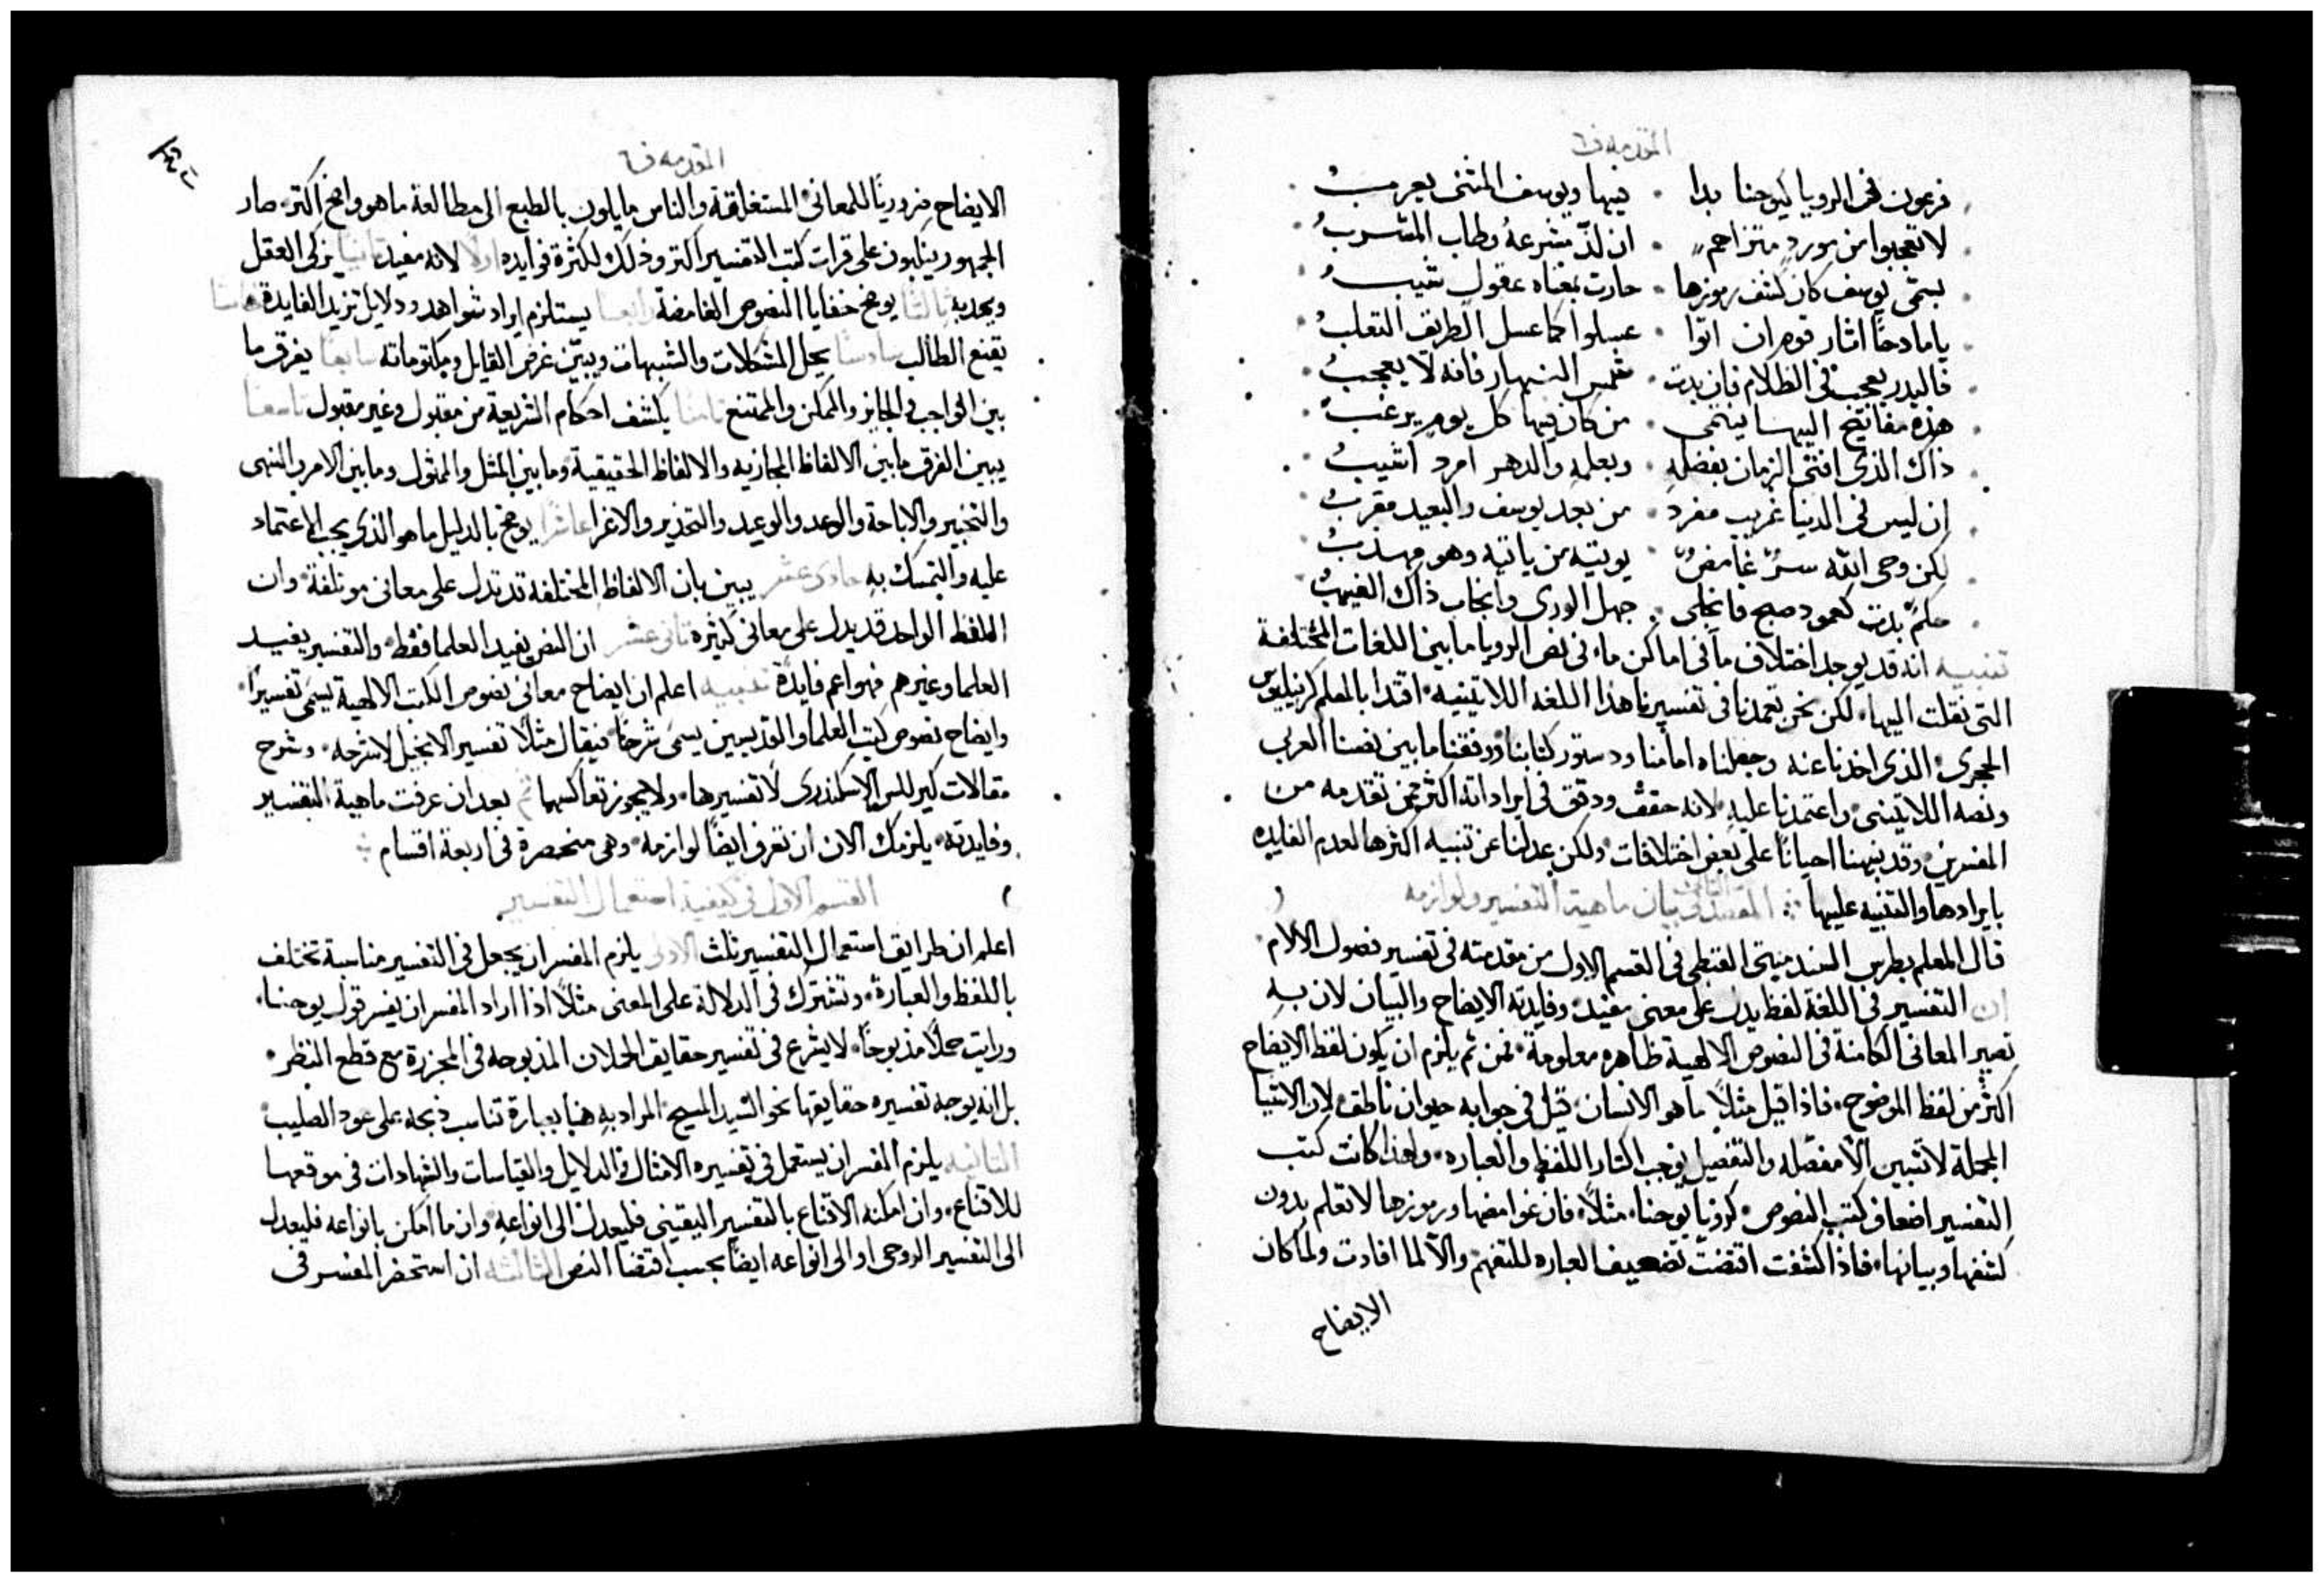 المقدمه ف
فرعون في الرويا كيوحنا بدا فيها ويوسف المثنى يعرب
لا تعجبوا من مورد متزاحم ان لذ مشرعه وطاب المشرب
بسمى يوسف كان كشف رموزها حارت بمعناه عقول شيب
يا مادحا اثار قوم ان اتوا عسلوا كما عسل الطريق الثعلب
فالبدر يعجب في الظلام فان بدت شمس النهار فانه لا يعجب
هذه مفاتيح اليها ينتمى من كان فيها كل يوم يرغب
ذاك الذي افتى الزمان بفضله وبعلمه والدهر امرد اشيب
ان ليس في الدنيا غريب مفرد من بعد يوسف والبعيد مقرب
لكن وحى الله سر غامض يوتيه من ياتيه وهو مهذب
حكم بدت كعمود صبح فانجلى جهل الورى وانجاب ذاك الغيهب
تنبيه انه قد يوجد اختلاف ما في اماكن ما في نص الرويا ما بين اللغات المختلفة
التي نقلت اليها، لكن نحن تعمدنا في تفسيرنا هذا اللغه اللاتينيه، اقتدا بالمعلم كرنيليوس
الحجري، الذي اخذنا عنه وجعلناه امامنا ودستور كتابنا ووفقنا ما بين نصنا العربي
ونصه اللاتيني واعتمدنا عليه، لانه حقق ودقق في ايراداته اكثر ممن تقدمه من
المفسرين، وقد نبهنا احيانا على بعض اختلافات، ولكن عدلنا عن تنبيه اكثرها لعدم الفايده
بايرادها والتنبيه عليها المقصد الثاني في بيان ماهية التفسير ولوازمه
قال المعلم بطرس السدمنتى القبطي في القسم الاول من مقدمته في تفسير فصول الالام
ان التفسير في اللغة لفظ يدل على معنى مفيد، وفايدته الايضاح والبيان لان به
تصير المعاني الكامنة في النصوص الالهية ظاهره معلومة، فمن ثم يلزم ان يكون لفظ الايضاح
اكثر من لفظ الموضوح، فاذا قيل مثلا ما هو الانسان، قيل في جوابه حيوان ناطق، لان الاشيا
المجملة لا تتبين الا مفصله والتفصيل يوجب اكثار اللفظ والعباره، ولهذا كانت كتب
التفسير اضعاف كتب النصوص، كرويا يوحنا، مثلا، فان غوامضها ورموزها لا تعلم بدون
كشفها وبيانها، فاذا كشفت اقتضت تضعيف العباره للتفهم والا لما افادت ولما كان
الايضاح
المقدمه ف
الايضاح ضروريا للمعاني المستغلقة والناس مايلون بالطبع الى مطالعة ما هو واضح اكثر، صار
الجمهور ينكبون على قرات كتب التفسير اكثر وذلك لكثرة فوايده اولا لانه مفيد ثانيا يزكي العقل
ويجديه ثالثا يوضح خفايا النصوص الغامضة رابعا يستلزم ايراد شواهد ودلايل تزيد الفايدة خامسا
يقنع الطالب سادسا يحل المشكلات والشبهات ويبين غرض القايل ومكتوماته سابعا يفرق ما
بين الواجب والجايز والممكن والممتنع ثامنا يكشف احكام الشريعة من مقبول وغير مقبول تاسعا
يبين الفرق ما بين الالفاظ المجازيه والالفاظ الحقيقية وما بين المثل والممثول وما بين الامر والنهى
والتخيير والاباحة والوعد والوعيد والتحذير والاغرا عاشرا يوضح بالدليل ما هو الذي يجب الاعتماد
عليه والتمسك به حادى عشر يبين بان الالفاظ المختلفة قد تدل على معاني موتلفة، وان
اللفظ الواحد قد يدل على معاني كثيره ثاني عشر ان النص يفيد العلما فقط، والتفسير يفيد
العلما وغيرهم فهو اعم فايدة تنبيه اعلم ان ايضاح معاني نصوص الكتب الالهية يسمى تفسيرا،
وايضاح نصوص كتب العلما والقديسين يسمى شرحا، فيقال مثلا تفسير الانجيل لا شرحه، وشرح
مقالات كيرللس الاسكندري لا تفسيرها، ولا يجوز تعاكسهما ثم بعد ان عرفت ماهية التفسير
وفايدته، يلزمك الان ان تعرف ايضا لوازمه، وهى منحصرة في اربعة اقسام
القسم الاول في كيفية استعمال التفسير
اعلم ان طرايق استعمال التفسير ثلث الاولى يلزم المفسر ان يجعل في التفسير مناسبة تختلف
باللفظ والعبارة، وتشترك في الدلالة على المعنى مثلا اذا اراد المفسر ان يفسر قول يوحنا،
ورايت حملا مذبوحا، لا يشرع في تفسير حقايق الحملان المذبوحه في المجزرة مع قطع النظر،
بل انه يوجه تفسيره حقايقها نحو السيد المسيح المراد به هنا بعبارة تناسب ذبحه على عود الصليب
الثانيه يلزم المفسر ان يستعمل في تفسيره الامثال والدلايل والقياسات والشهادات في موقعها
للاقناع، وان امكنه الاقناع بالتفسير اليقيني فليعدل الى انواعه، وان ما امكن بانواعه فليعدل
الى التفسير الروحي او الى انواعه ايضا بحسب اقتضا النص الثالثه ان استحضر المفسر في